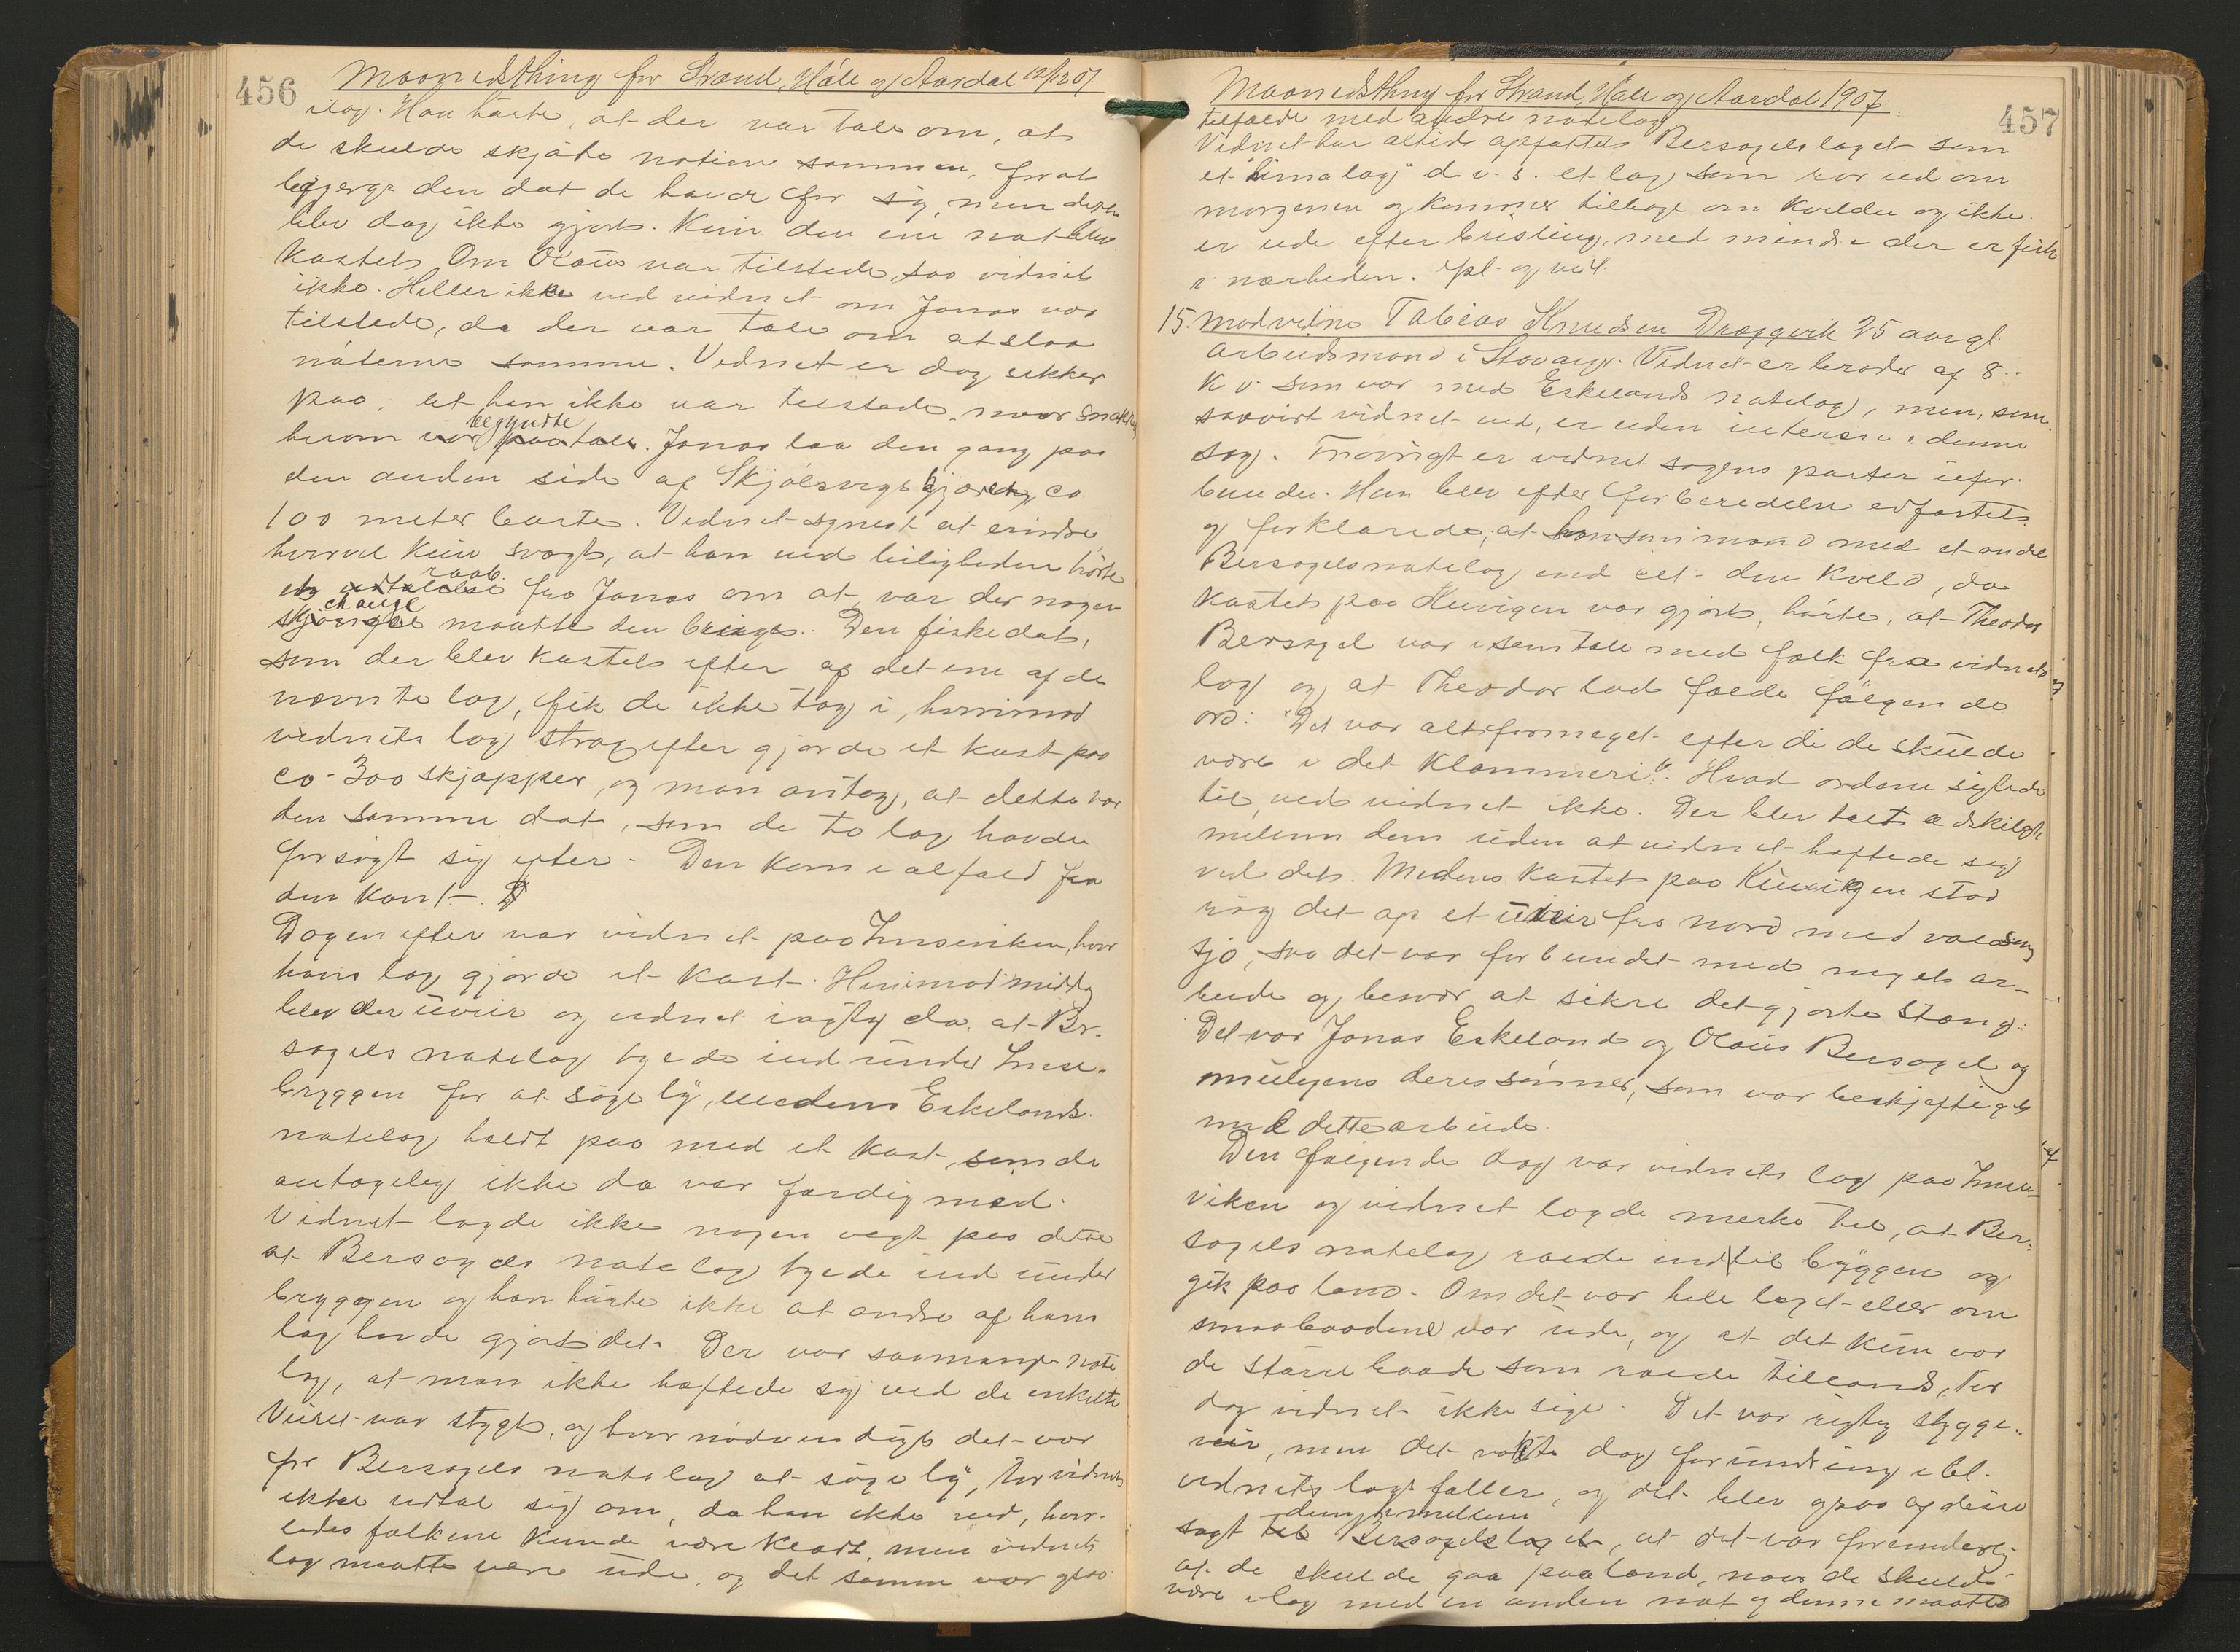 456
Maanedsthing for Strand, Håle og Aardal 12/12 07
slag. Han hørte, at der var tale om, at
de skulde skjøte notine sammen, forat
bjerge den dat de havde for sig, men dette
blev dog ikke gjort. Kun den ene not blev
kastet. Om Olaus var tilstede, saa vidnet
ikke. Heller ikke ved vidnet om Jonas var
tilstede, da der var tale om at slaa
nøterne sammen. Vidnet er dog sikker
paa, at han ikke var tilstede naar snakken
herom begyndte. Jonas laa den gang paa
den anden side af Skjølsvigs kjær ca.
100 meter borte. Vidnet synest at erindre,
hvorvel kun svagt, at han ved leiligheden hørte
et raab fra Jonas om at, var der nogen
change maatte den bruges. Den fiskedat,
som der blev kastet efter af det ene af de
nævnte lag, fik de ikke tag i, hvorimod
vidnets lag strax efter gjorde et kast paa
ca. 300 skjæpper, og man antog, at dette var
den samme dat, som de to lag havde
forsøgt sig efter. Den kom i alfald fra
den kant.
Dagen efter var vidnet paa Imseviken, hvor
hans lag gjorde et kast. Henimod middag
blev der uveir og vidnet iagtog da, at Ber-
sagels notelag tyede ind under Imse-
bryggen for at søge ly, medens Eskelands
notelag holdt paa med et kast, som de
antagelig ikke da var færdig med.
Vidnet lagde ikke nogen vegt paa dette
at Bersagels notelag tyede ind under
bryggen og han hørte ikke at andre af hans
lag havde gjort det. Der var saamange note-
lag, at man ikke hæftede sig ved de enkelte
Veiret var stygt, og hvor nødvendigt det var
for Bersagels notelag at søge ly, tør vidnet
ikke udtale sig om, da han ikke ved, hvor-
ledes folkene kunde være klædt, men vidnets
lag maatte være ude, og det samme var ogsaa
457
Maanedsthing for Strand, Håle og Aardal 1907
tilfælde med andre notelag
Vidnet har altid opfattet Bersagelslaget som
et "himalag" d. v. s. et lag, som ror ud om
morgenen og kommer tilbage om kvelden og ikke
er ude efter brisling, med mindre der er fisk
i nærheden. Opl. og vedt.
15. Modvidne Tobias Knudsen Dræggevik 35 aar gl.
arbeidsmand i Stavanger. Vidnet er broder af 8.
K v. som var med Eskelands notelag, men, som
saavidt vidnet ved, er uden interesse i denne
sag. Forøvrigt er vidnet sagens parter ufor-
bunden. Han blev efter forberedelse edfæstet
og forklarede, at han som mand med et andet
Bersagelsnotelag end cit. den kveld, da
kastet paa Kuvigen var gjort, hørte, at Theodor
Bersagel var i samtale med folk fra vidnets
lag og at Theodor lod falde følgende
ord: "Det var altformeget efterdi de skulde
være i det klammeri". Hvad ordene sigtede
til, ved vidnet ikke. Der blev talt adskilligt
mellem dem uden at vidnet hæftede sig
ved det. Medens kastet paa Kuvigen stod
røg det op et uveir fra nord med voldsom
sjø, saa det var forbundet med meget ar-
beide og besvær at sikre det gjorte stæng.
Det var Jonas Eskeland og Olaus Bersagel og
muligens deres sønner, som var beskjeftiget
med dette arbeide.
Den følgende dag var vidnets lag paa Imse-
viken og vidnet lagde merke til, at Ber-
sagels notelag roede ind til byggen og
gik paa land. Om det var hele laget eller om
smaabaadene var ude, og at det kun var
de større baade som roede tillands, tør
dog vidnet ikke sige. Det var rigtig stygge-
veir, men det vakte dog forundring i bl.
vidnets lagsfæller, og det blev ogsaa af disse
sagt dem imellem, at det var forunderlig
at de skulde gaa paa land, naar de skulde
være i lag med en anden not og denne maatte